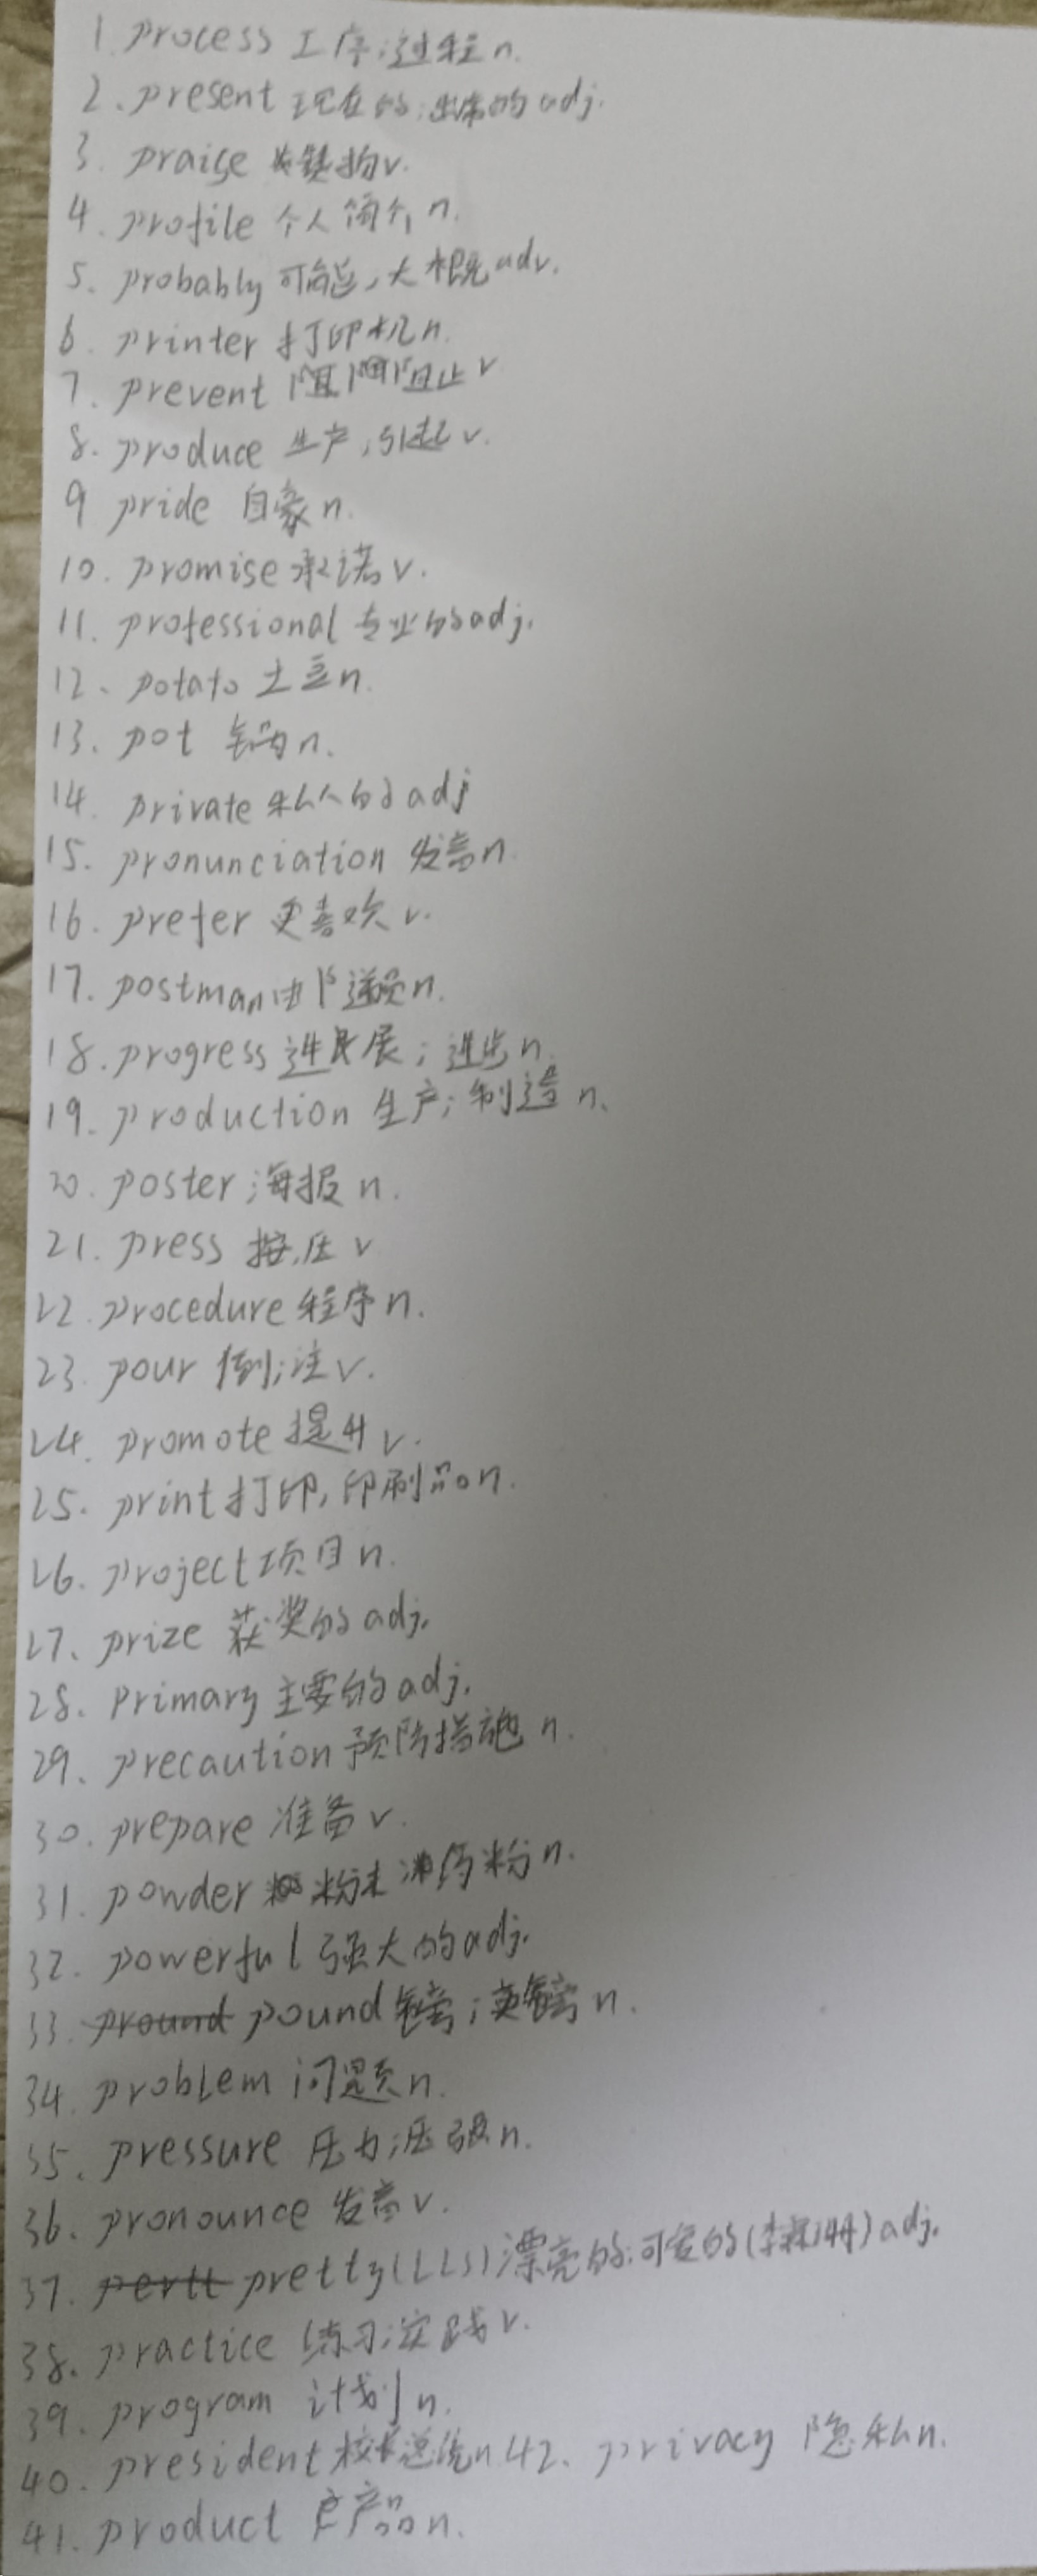 1. process 工序;过程 n.
2. present 现在的;出席的 adj.
3. praise 赞扬 v.
4. profile 个人简介 n.
5. probably 可能,大概 adv.
6. printer 打印机 n.
7. prevent 阻止 v
8. produce 生产,引起 v.
9 pride 自豪 n.
10. promise 承诺 v.
11. professional 专业的 adj.
12. potato 土豆 n.
13. pot 锅 n.
14. private 私人的 adj
15. pronunciation 发音 n.
16. prefer 更喜欢 v.
17. postman 邮递员 n.
18. progress 进展;进步 n.
19. production 生产;制造 n.
20. poster 海报 n.
21. press 按,压 v
22. procedure 程序 n.
23. pour 倒;注 v.
24. promote 提升 v.
25. print 打印,印刷品 n.
26. project 项目 n.
27. prize 获奖的 adj.
28. primary 主要的 adj.
29. precaution 预防措施 n.
30. prepare 准备 v.
31. powder 粉末 药粉 n.
32. powerful 强大的 adj.
33. pround pound 镑;英镑 n.
34. problem 问题 n.
35. pressure 压力;压强 n.
36. pronounce 发音 v.
37. pertt pretty(LLS) 漂亮的;可爱的() adj.
38. practice 练习;实践 v.
39. program 计划 n.
40. president 校长总统 n 42. privacy 隐私 n.
41. product 产品 n.